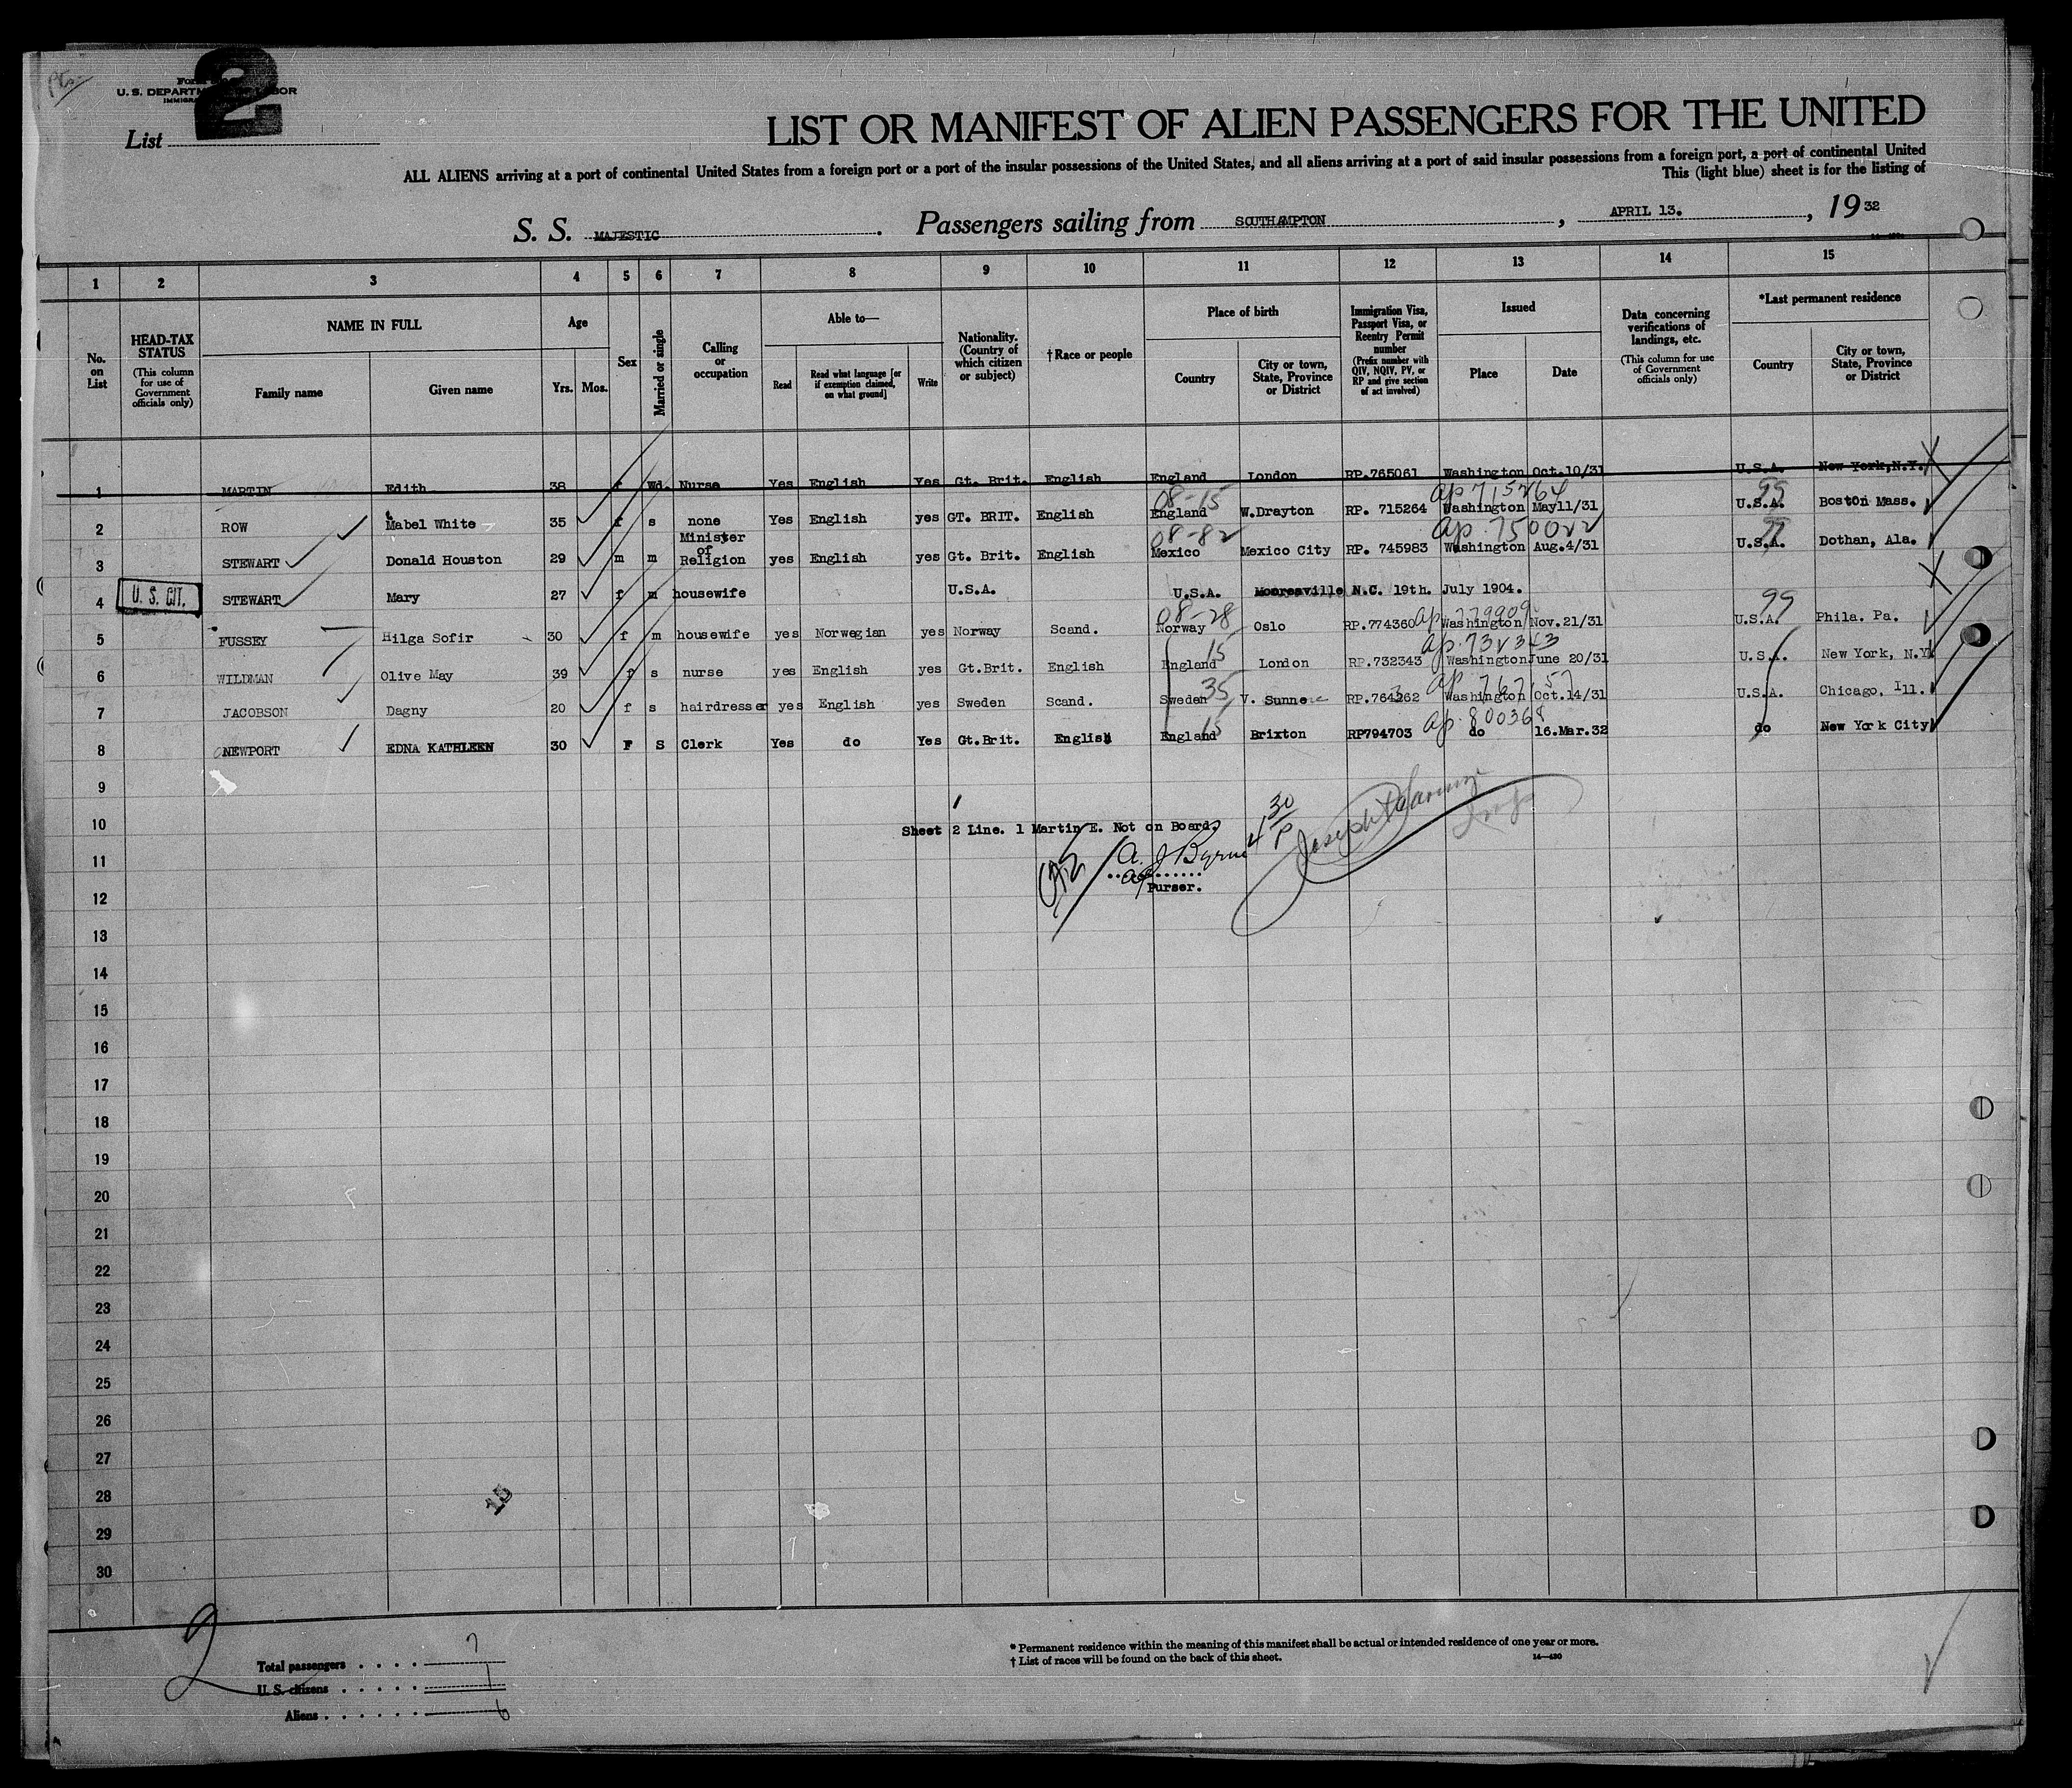 2
U. S. DEPARTMENT OF LABOR
List
LIST OR MANIFEST OF ALIEN PASSENGERS FOR THE UNITED
ALL ALIENS arriving at a port of continental United States from a foreign port or a port of the insular possessions of the United States, and all aliens arriving at a port of said insular possessions from a foreign port, a port of continental United
This (light blue) sheet is for the listing of
S. S. MAJESTIC. Passengers sailing from SOUTHAMPTON, APRIL 13., 1932
1 2 3 4 5 6 7 8 9 10 11 12 13 14 15
No. on List
HEAD-TAX STATUS (This column for use of Government officials only)
NAME IN FULL
Family name
Given name
Age
Yrs. Mos.
Sex
Married or single
Calling or occupation
Able to—
Read
Read what language [or if exemption claimed, on what ground]
Write
Nationality. (Country of which citizen or subject)
†Race or people
Place of birth
Country
City or town, State, Province or District
Immigration Visa, Passport Visa, or Reentry Permit number (Prefix number with QIV, NQIV, PV, or RP and give section of act involved)
Issued
Place
Date
Data concerning verifications of landings, etc. (This column for use of Government officials only)
*Last permanent residence
Country
City or town, State, Province or District
1 MARTIN Edith 38 f Wd. Nurse Yes English Yes Gt. Brit. English England London RP.765061 Washington Oct.10/31 U.S.A. New York,N.Y.
08-15 ap 715264 99
2 ROW Mabel White 35 f s none Yes English yes GT. BRIT. English England W.Drayton RP. 715264 Washington May11/31 U.S.A. Boston Mass.
08-82 ap. 750022 99
3 STEWART Donald Houston 29 m m Minister of Religion yes English yes Gt. Brit. English Mexico Mexico City RP. 745983 Washington Aug.4/31 U.S.A. Dothan, Ala.
4 U. S. CIT. STEWART Mary 27 f m housewife U.S.A. U.S.A. Mooresville N.C. 19th. July 1904.
08-28 ap 779909 99
5 FUSSEY Hilga Sofir 30 f m housewife yes Norwegian yes Norway Scand. Norway Oslo RP.774360 Washington Nov.21/31 U.S.A. Phila. Pa.
15 ap. 732343
6 WILDMAN Olive May 39 f s nurse yes English yes Gt.Brit. English England London RP.732343 Washington June 20/31 U.S.A. New York, N.Y.
35
7 JACOBSON Dagny 20 f s hairdresser yes English yes Sweden Scand. Sweden V. Sunne RP.764362 Washington Oct.14/31 U.S.A. Chicago, Ill.
15 ap. 800368
8 NEWPORT EDNA KATHLEEN 30 F S Clerk Yes do Yes Gt.Brit. English England Brixton RP794703 do 16.Mar.32 do New York City
9
10
Sheet 2 Line. 1 Martin E. Not on Board.
4 30 P
11
A. J Byrne
Purser.
12
13
14
15
16
17
18
19
20
21
22
23
24
25
26
27
28
15
29
30
2
Total passengers . . . . 7
U. S. citizens . . . . . 1
Aliens . . . . . . 6
* Permanent residence within the meaning of this manifest shall be actual or intended residence of one year or more.
† List of races will be found on the back of this sheet.
14—430